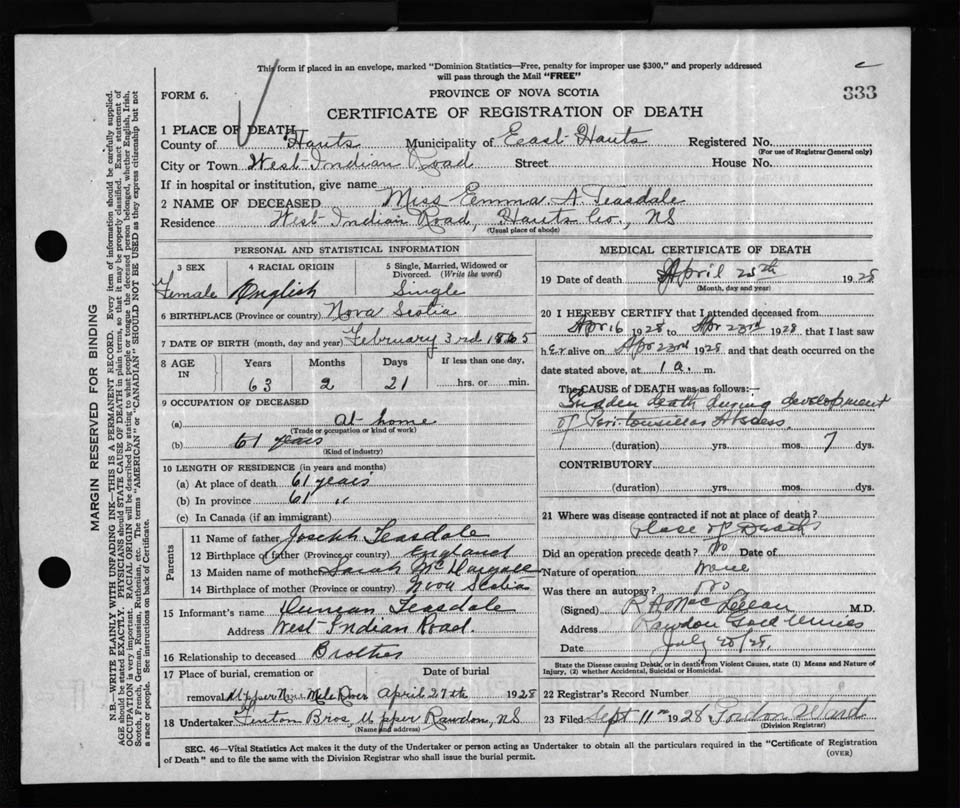 This form if placed in an envelope, marked "Dominion Statistics—Free, penalty for improper use $300," and properly addressed
will pass through the Mail "FREE"
FORM 6.
PROVINCE OF NOVA SCOTIA
333
CERTIFICATE OF REGISTRATION OF DEATH
1 PLACE OF DEATH
County of Hants Municipality of East Hants Registered No.
(For use of Registrar General only)
City or Town West Indian Road Street House No.
If in hospital or institution, give name
2 NAME OF DECEASED Miss Emma A. Teasdale
Residence West Indian Road, Hants Co., NS
(Usual place of abode)
PERSONAL AND STATISTICAL INFORMATION
3 SEX 4 RACIAL ORIGIN 5 Single, Married, Widowed or
Divorced. (Write the word)
Female English Single
6 BIRTHPLACE (Province or country) Nova Scotia
7 DATE OF BIRTH (month, day and year) February 3rd 1865
8 AGE IN Years Months Days If less than one day,
63 2 21 hrs. or min.
9 OCCUPATION OF DECEASED
(a) At home
(Trade or occupation or kind of work)
(b) 61 years
(Kind of industry)
10 LENGTH OF RESIDENCE (in years and months)
(a) At place of death 61 years
(b) In province 61 "
(c) In Canada (if an immigrant)
Parents
11 Name of father Joseph Teasdale
12 Birthplace of father (Province or country) England
13 Maiden name of mother Sarah
14 Birthplace of mother (Province or country) Nova Scotia
15 Informant's name Duncan Teasdale
Address West Indian Road.
16 Relationship to deceased Brother
17 Place of burial, cremation or Date of burial
removal Upper Nine Mile River April 27th 1928
18 Undertaker Fenton Bros, Upper Rawdon, NS
(Name and address)
MEDICAL CERTIFICATE OF DEATH
19 Date of death April 25th 1928
(Month, day and year)
20 I HEREBY CERTIFY that I attended deceased from
Apr 16 1928 to Apr 23rd 1928 that I last saw
her alive on Apr 23rd 1928 and that death occurred on the
date stated above, at 1 a. m.
The CAUSE OF DEATH was as follows:—
Sudden death during development
of Peritonsillar Abscess.
(duration) yrs. mos. 7 dys.
CONTRIBUTORY
(duration) yrs. mos. dys.
21 Where was disease contracted if not at place of death?
Place of Death
Did an operation precede death? No Date of
Nature of operation None
Was there an autopsy? No
(Signed) M.D.
Address Rawdon Gold Mines
Date July 20/28.
State the Disease causing Death, or in death from Violent Causes, state (1) Means and Nature of
Injury, (2) whether Accidental, Suicidal or Homicidal.
22 Registrar's Record Number
23 Filed Sept 11th 1928 Gordon Ward
(Division Registrar)
SEC. 46—Vital Statistics Act makes it the duty of the Undertaker or person acting as Undertaker to obtain all the particulars required in the "Certificate of Registration
of Death" and to file the same with the Division Registrar who shall issue the burial permit.
(OVER)
MARGIN RESERVED FOR BINDING
N.B.—WRITE PLAINLY WITH UNFADING INK—THIS IS A PERMANENT RECORD. Every item of information should be carefully supplied.
AGE should be stated EXACTLY. PHYSICIANS should STATE CAUSE OF DEATH in plain terms, so that it may be properly classified. Exact statement of
OCCUPATION is very important. RACIAL ORIGIN will be described by stating to what people or tongue the deceased person belonged, whether English, Irish,
Scotch, French, German, Russian, Ruthenian, etc. The terms "AMERICAN" or "CANADIAN" SHOULD NOT BE USED as they express citizenship but not
a race or people. See instructions on back of Certificate.